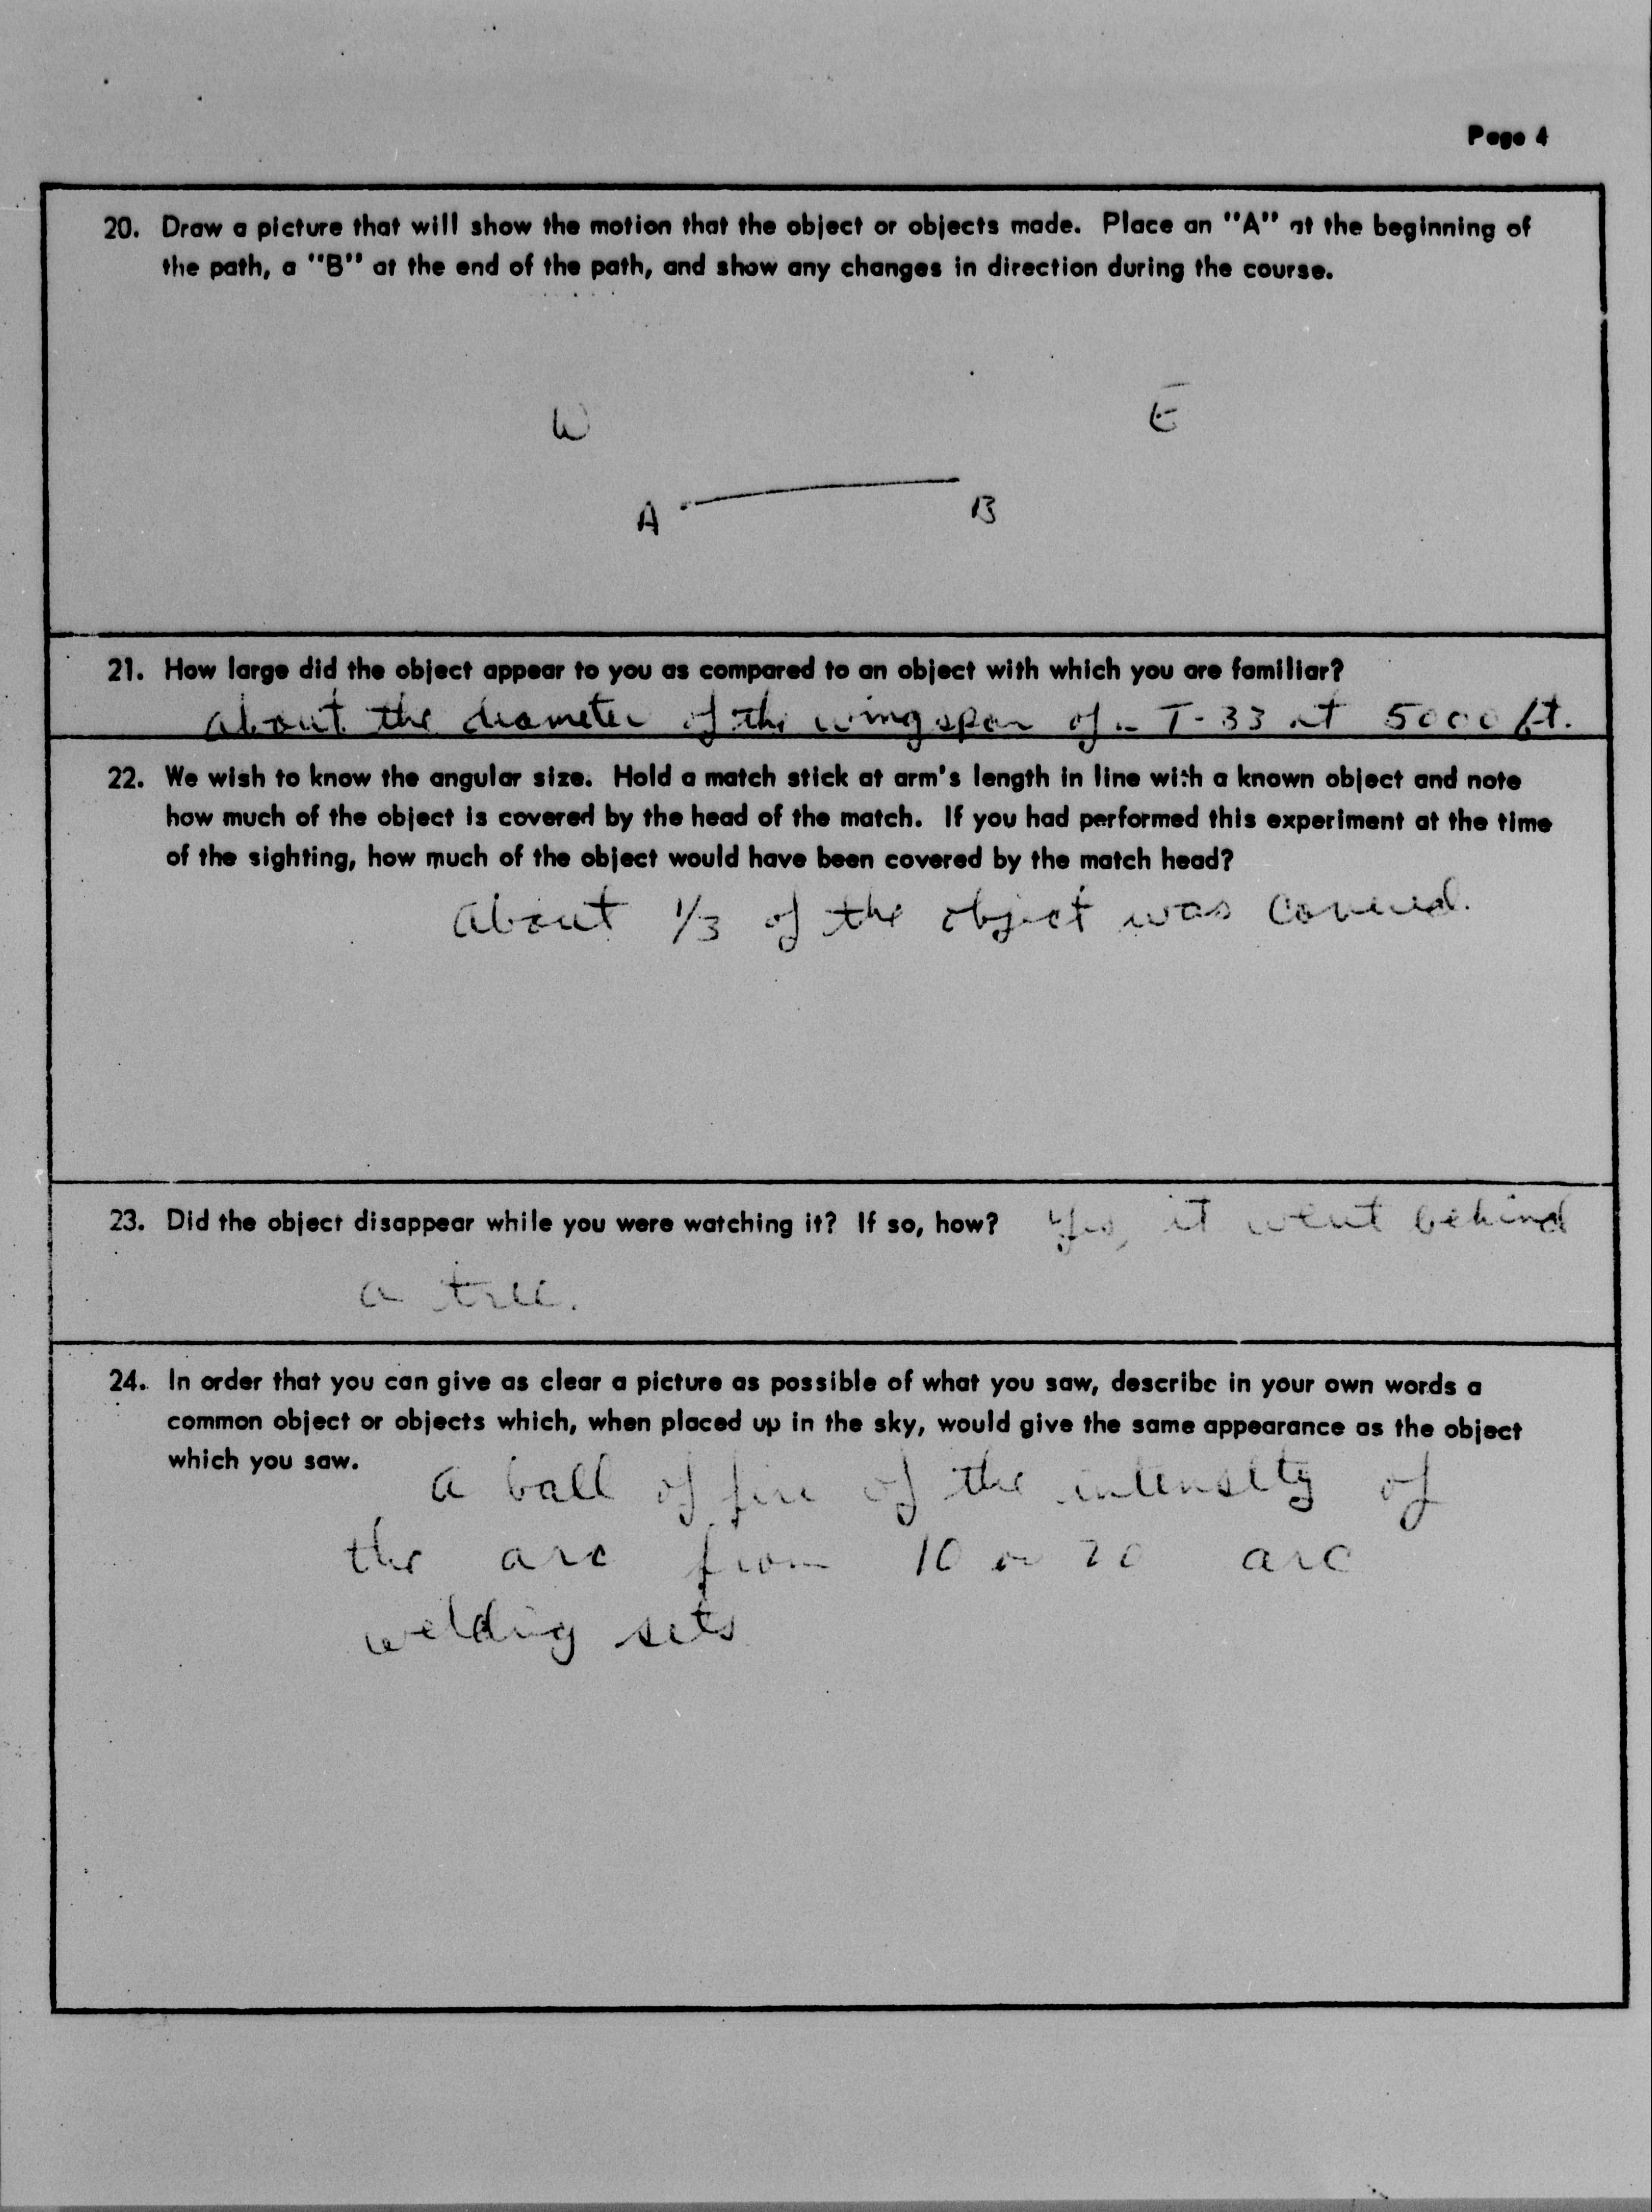 Page 4
20. Draw a picture that will show the motion that the object or objects made. Place an "A" at the beginning of
the path, a "B" at the end of the path, and show any changes in direction during the course.
W E
A B
21. How large did the object appear to you as compared to an object with which you are familiar?
About the diameter of the wingspan of a T-33 at 5000 ft.
22. We wish to know the angular size. Hold a match stick at arm's length in line with a known object and note
how much of the object is covered by the head of the match. If you had performed this experiment at the time
of the sighting, how much of the object would have been covered by the match head?
About 1/3 of the object was covered.
23. Did the object disappear while you were watching it? If so, how? Yes, it went behind
a tree.
24. In order that you can give as clear a picture as possible of what you saw, describe in your own words a
common object or objects which, when placed up in the sky, would give the same appearance as the object
which you saw.
A ball of fire of the intensity of
the arc from 10 or 20 arc
welding sets